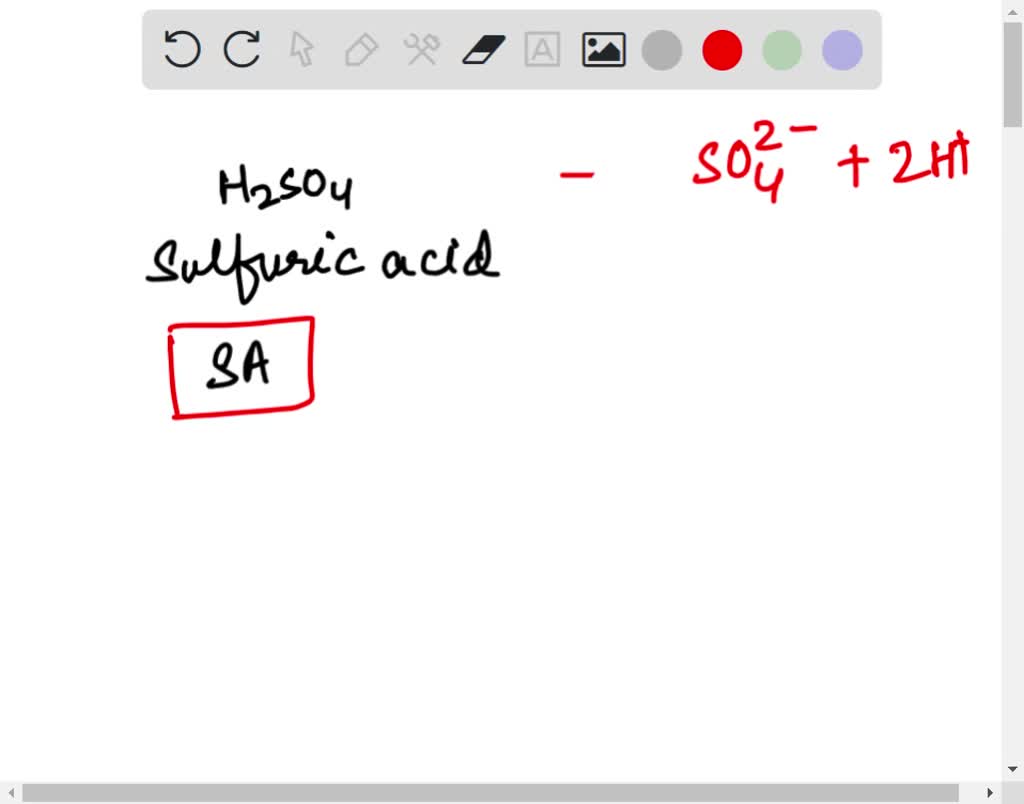 H₂SO₄ – SO₄²⁻ + 2H⁺
Sulfuric acid
SA